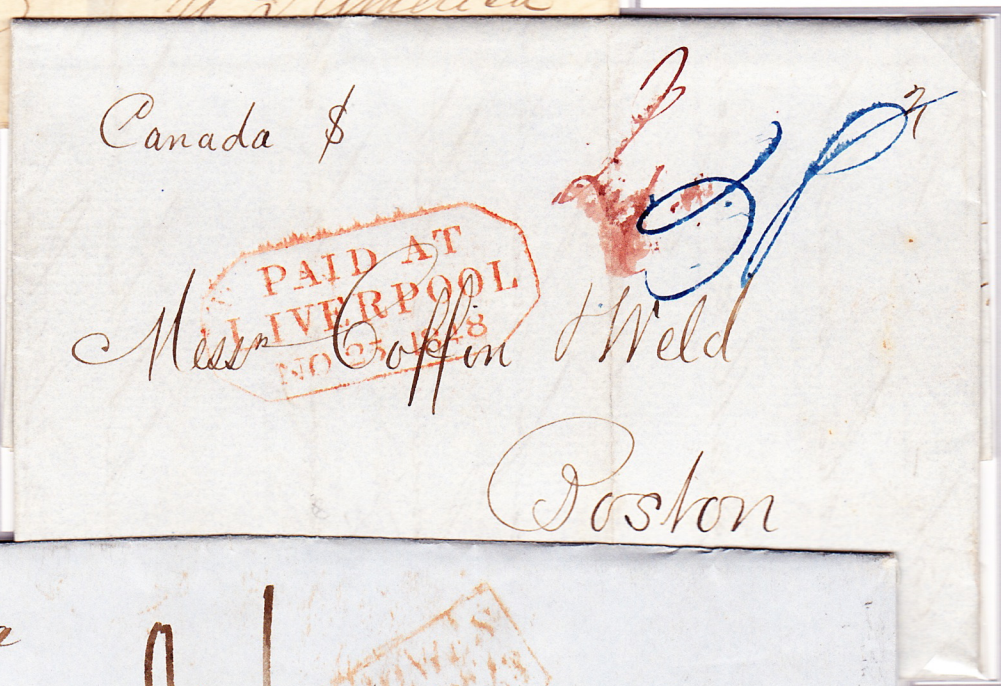 America
Canada $
PAID AT
LIVERPOOL
NO 25 1848
Messrs Coffin & Weld
Boston